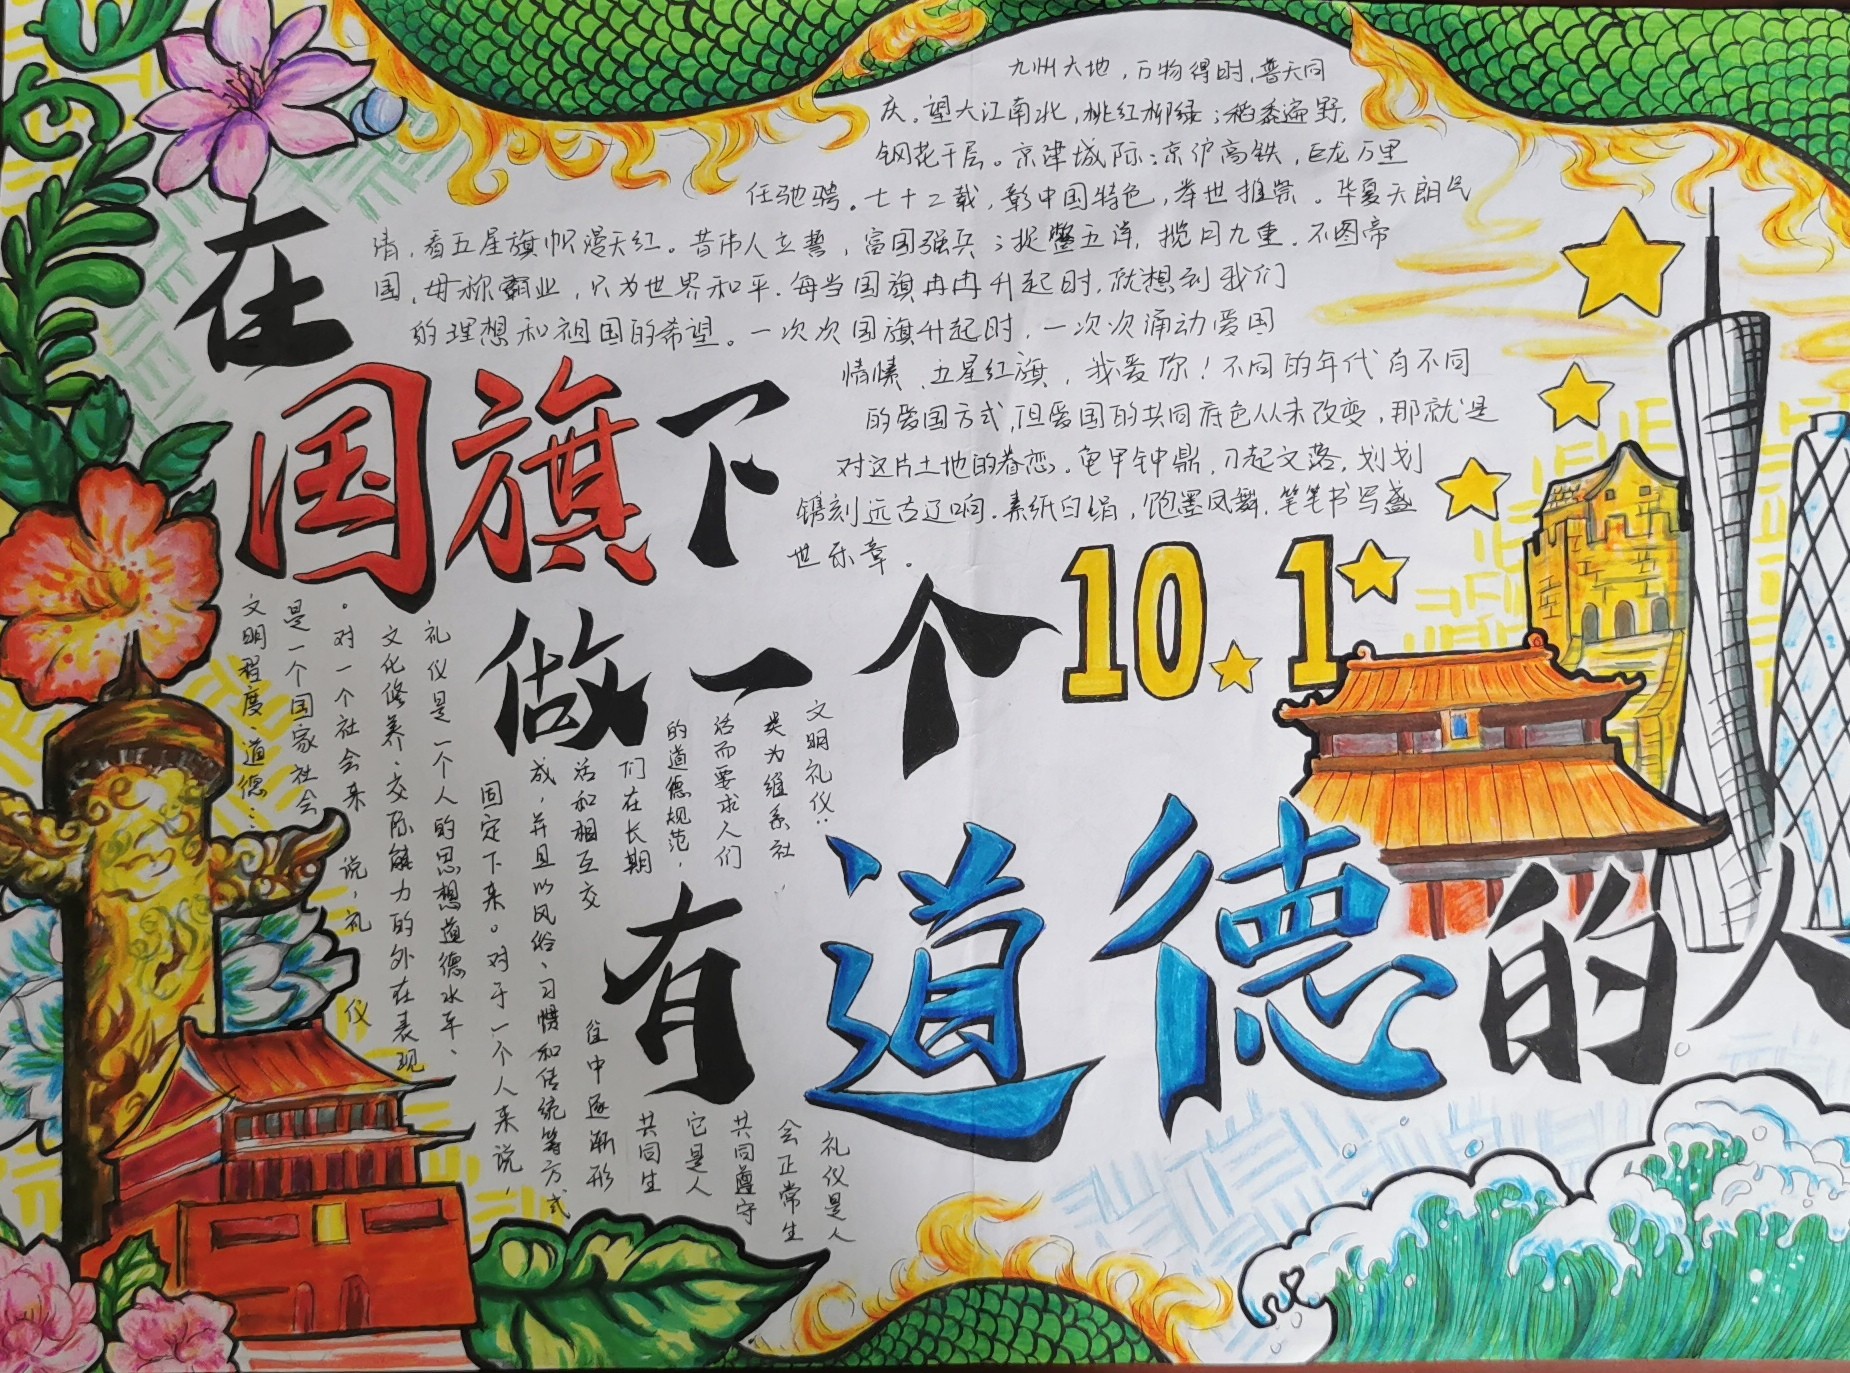 在
国旗下
做一个
有道德的人
10.1
九州大地，万物得时，普天同
庆。望大江南北，桃红柳绿；稻黍遍野，
钢花千层。京津城际；京沪高铁，巨龙万里
任驰骋。七十二载，彰中国特色，举世推崇。华夏天朗民
清，看五星旗帜漫天红。昔市人立誓，富国强兵；捉鳖五洋，揽月九重。不图帝
国，毋称霸业，只为世界和平。每当国旗冉冉升起时，就想到我们
的理想和祖国的希望。一次次国旗升起时，一次次涌动爱国
情愫、五星红旗，我爱你！不同的年代有不同
的爱国方式，但爱国的共同底色从未改变，那就是
对这片土地的眷恋。龟甲钟鼎，刀起文落，划划
镌刻远古辽响。素纸白绢，饱墨凤舞，笔笔书写盛
世乐章。
文明礼仪：礼仪是人
类为维系社、会正常生
活而要求人们共同遵守
的道德规范，它是人
们在长期共同生
活和相互交往中逐渐形
成，并且以风俗、习惯和传统等方式
固定下来。对于一个人来说，
礼仪是一个人的思想道德水平、
文化修养、交际能力的外在表现
。对一个社会来说，礼仪
是一个国家社会
文明程度、道德……